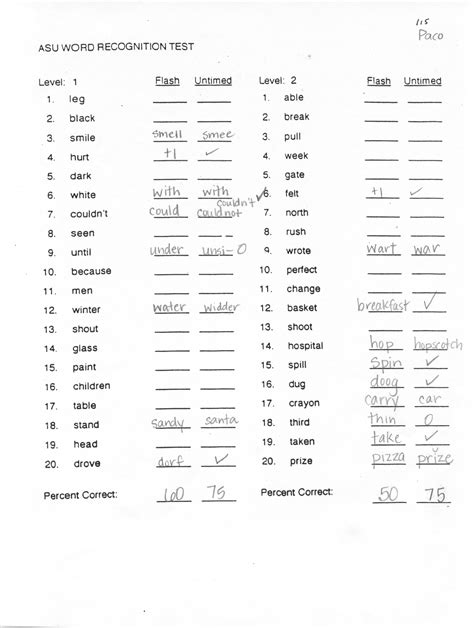 115
Paco
ASU WORD RECOGNITION TEST
Level: 1 Flash Untimed Level: 2 Flash Untimed
1. leg 1. able
2. black 2. break
3. smile smell smee 3. pull
4. hurt +1 ✓ 4. week
5. dark 5. gate
6. white with with ✓6. felt +1 ✓
couldn't
7. couldn't could couldnot 7. north
8. seen 8. rush
9. until under unsi-0 9. wrote wart war
10. because 10. perfect
11. men 11. change
12. winter water widder 12. basket breakfast ✓
13. shout 13. shoot
14. glass 14. hospital hop hopscotch
15. paint 15. spill spin ✓
16. children 16. dug doog ✓
17. table 17. crayon carry car
18. stand sandy santa 18. third thin 0
19. head 19. taken take ✓
20. drove dorf ✓ 20. prize pizza prize
Percent Correct: 75 Percent Correct: 50 75